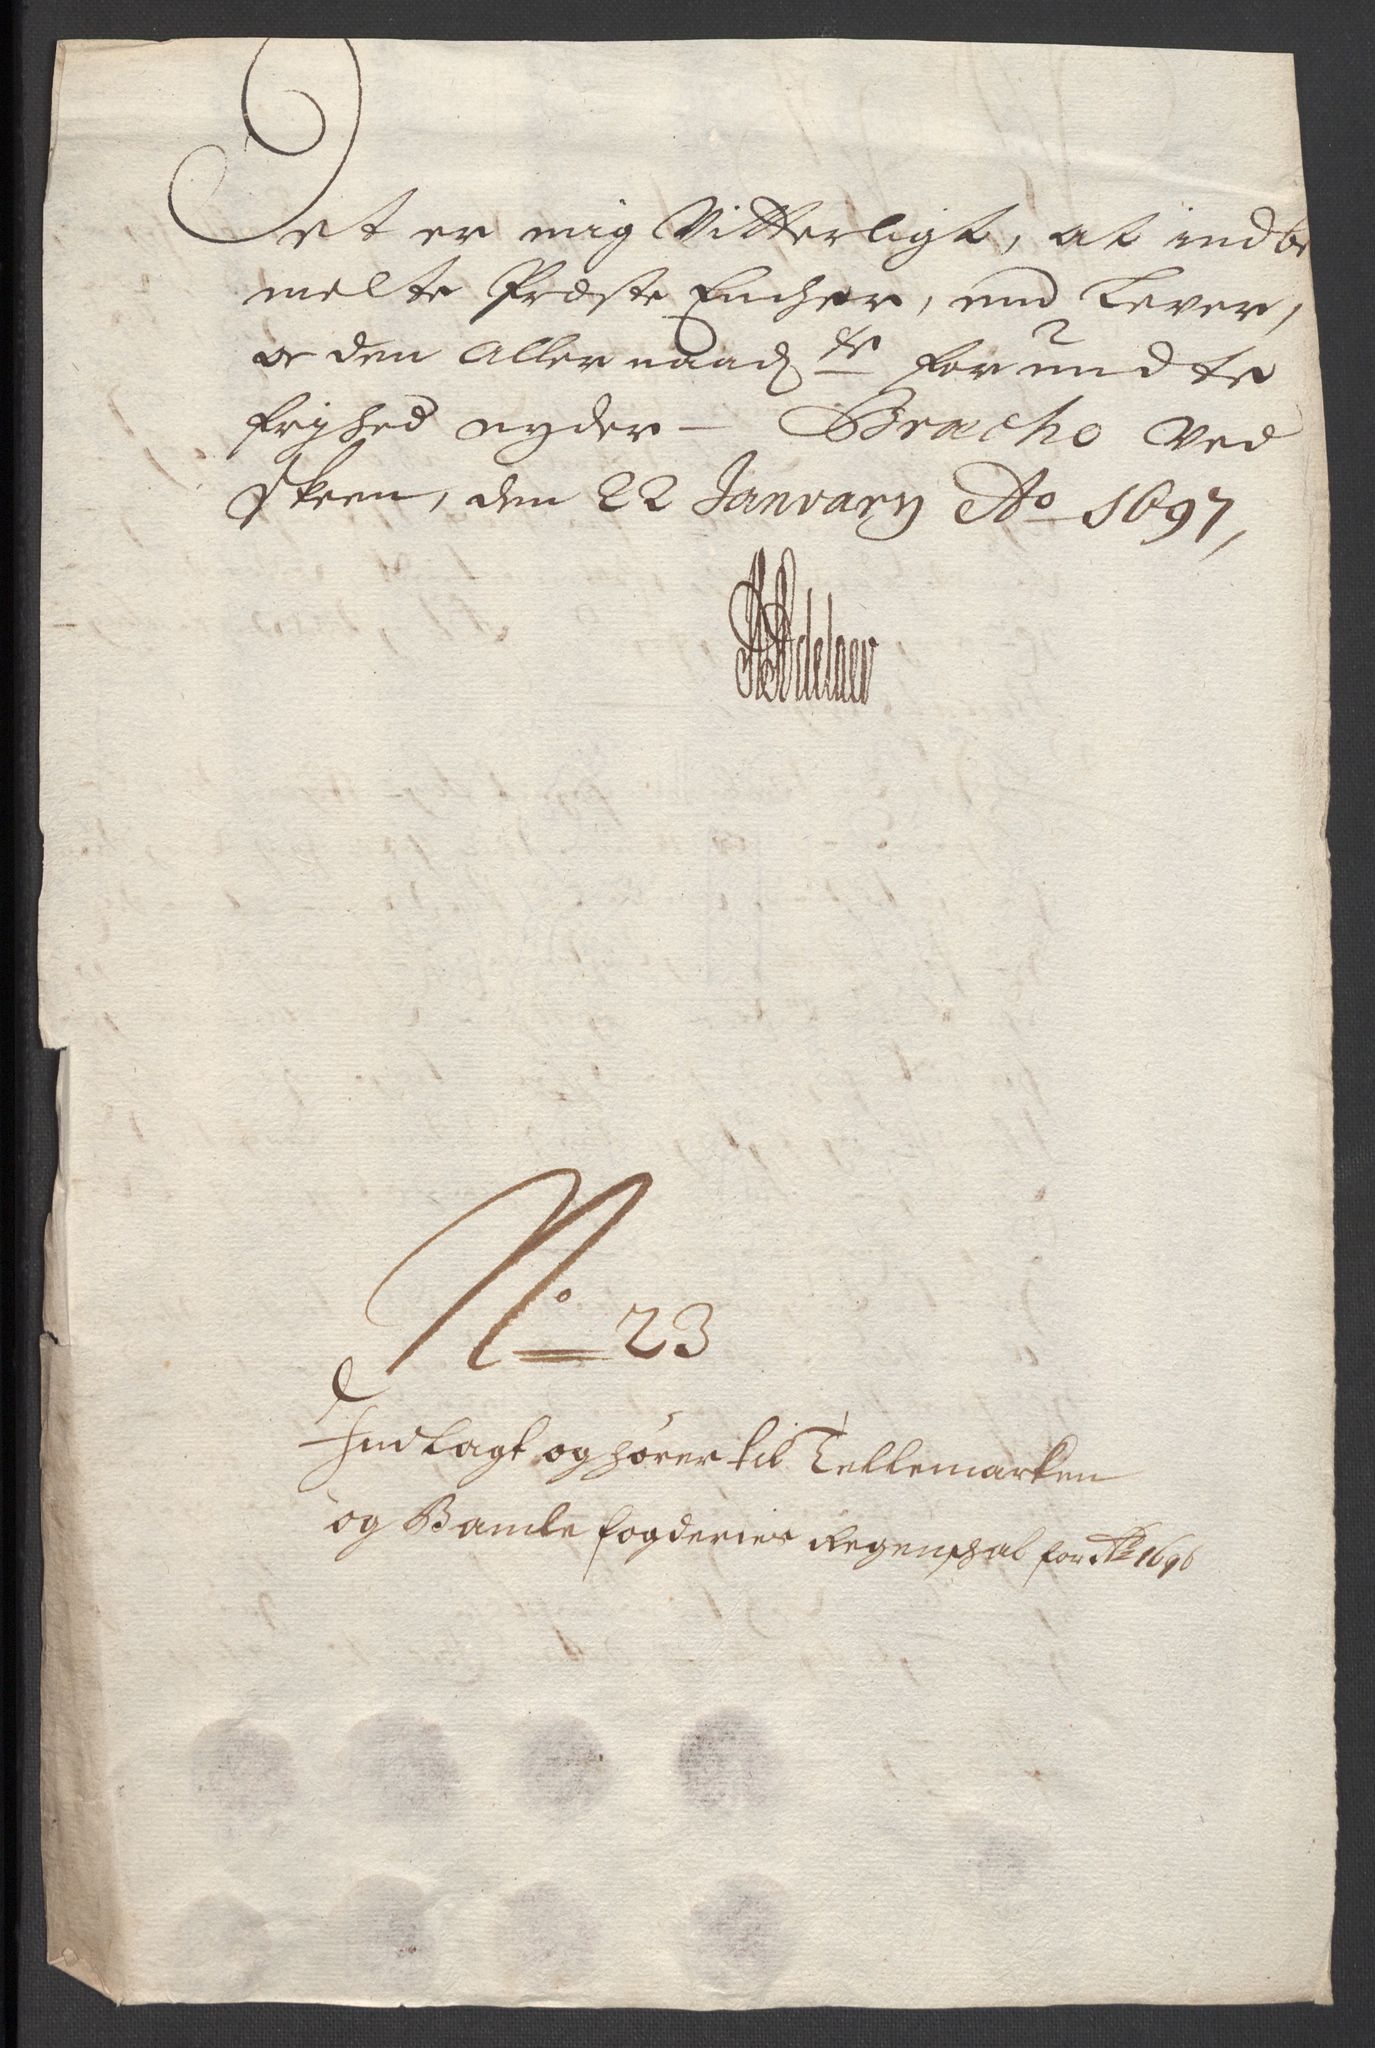 Det er mig Vitterligt, at indbe
melte Præste Encher, end Lever,
oc den Allernaadste forundte
frijhed nyder – Bracho Ved
Skeen, den 22 January Ao 1697,
Adelaer
No 23
Indlagt og hører til Tellemarken
og Bamle fogderies Regenskab for Ao 1696